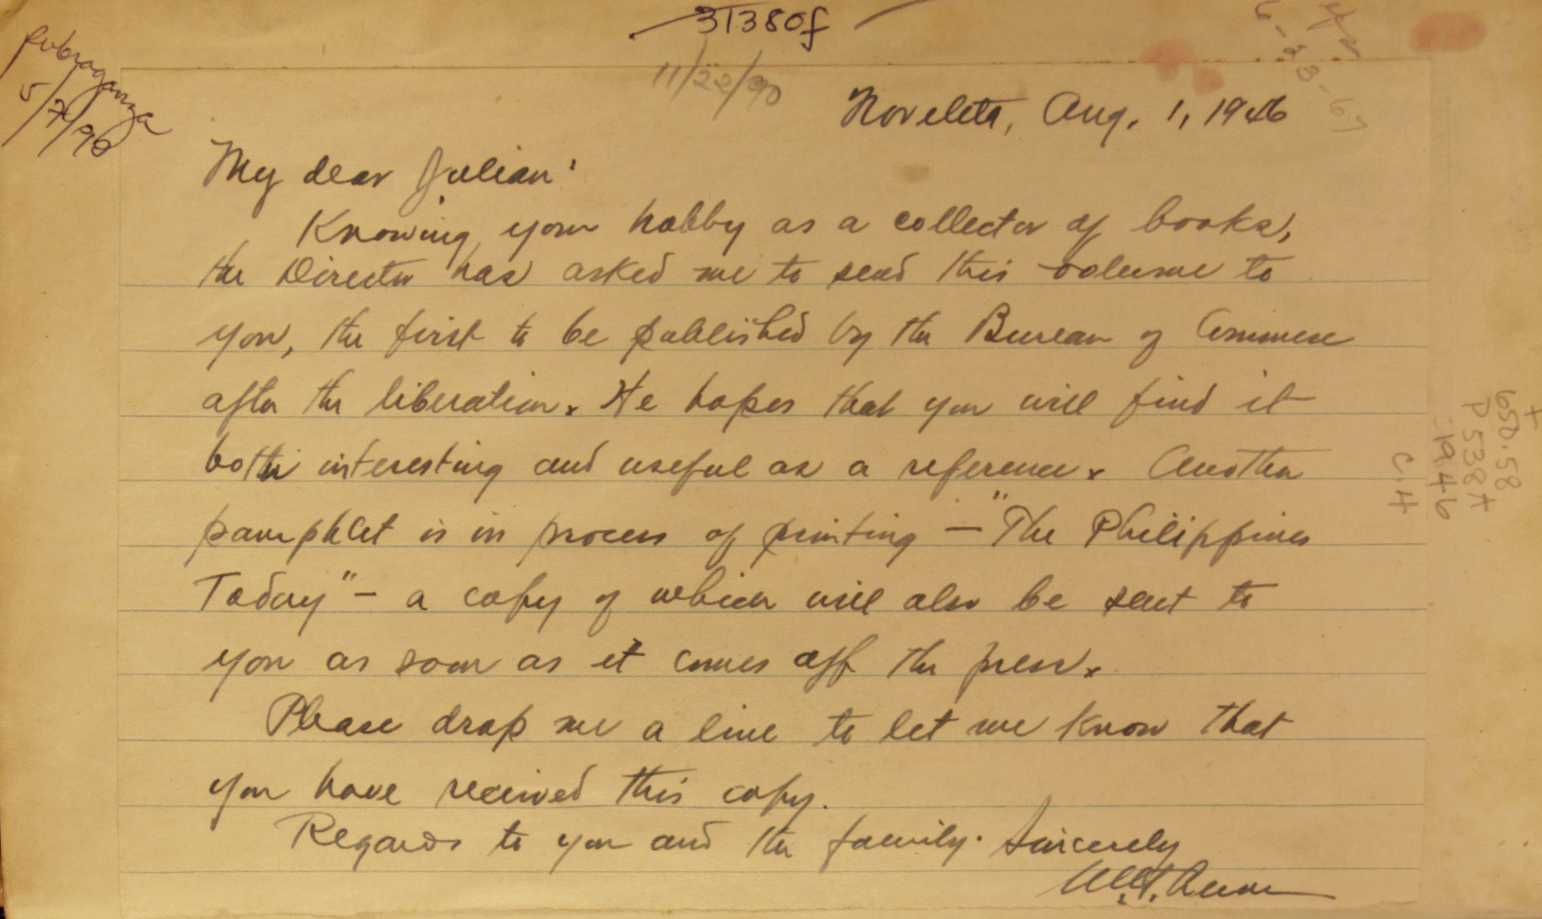 31380f
11/22/90
5/7/90
Noveleta, Aug. 1, 1946
My dear Julian:
Knowing your hobby as a collector of books,
the Director has asked me to send this volume to
you, the first to be published by the Bureau of Commerce
after the liberation. He hopes that you will find it
both interesting and useful as a reference. Another
pamphlet is in process of printing — "The Philippines
Today" — a copy of which will also be sent to
you as soon as it comes off the press.
Please drop me a line to let me know that
you have received this copy.
Regards to you and the family. Sincerely
+
650.58
P538t
1946
C.H